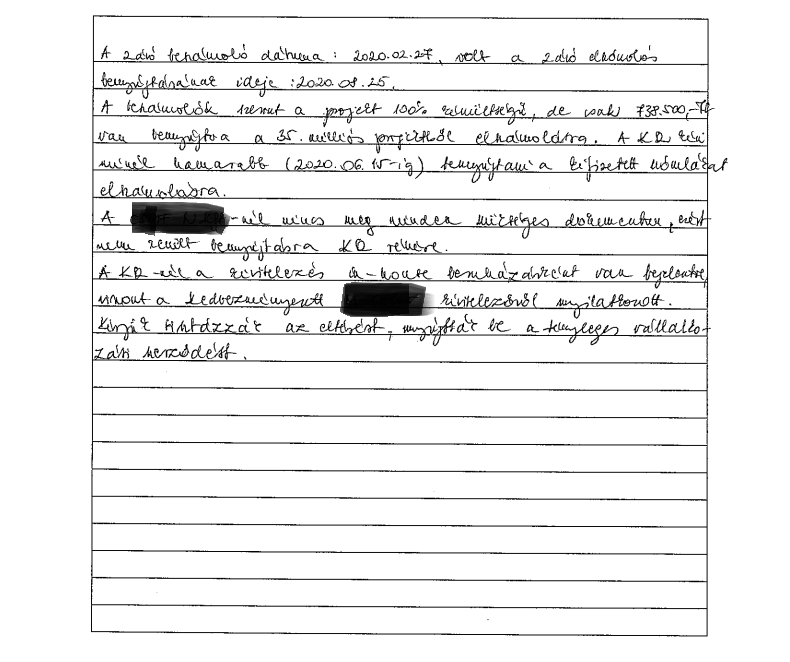 A záró beszámoló dátuma : 2020.02.27, volt a záró elszámolás
benyújtásának ideje : 2020.08.25.
A beszámolók szerint a projekt 100% készültségű, de csak 738.500,-Ft
van benyújtva a 35. milliós projektből elszámolásra. A KR kéri
minél hamarabb (2020.06.15-ig) benyújtani a kifizetett számlákat
elszámolásra.
A -nél nincs meg minden szükséges dokumentum, ezért
nem került benyújtásra KR részére.
A KR-nél a kivitelezés in-house beruházásként van bejelentve,
viszont a kedvezményezett kivitelezőről nyilatkozott.
Kérjük tisztázzák az eltérést, nyújtsák be a tényleges vállalko-
zási szerződést.